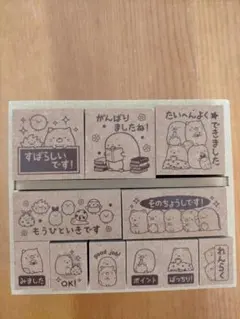 すばらしい
です!
がんばり
ましたね!
たいへんよく
できました
もうひといきです
そのちょうしです!
みました
OK!
good job!
ポイント
ばっちり!
れんらく